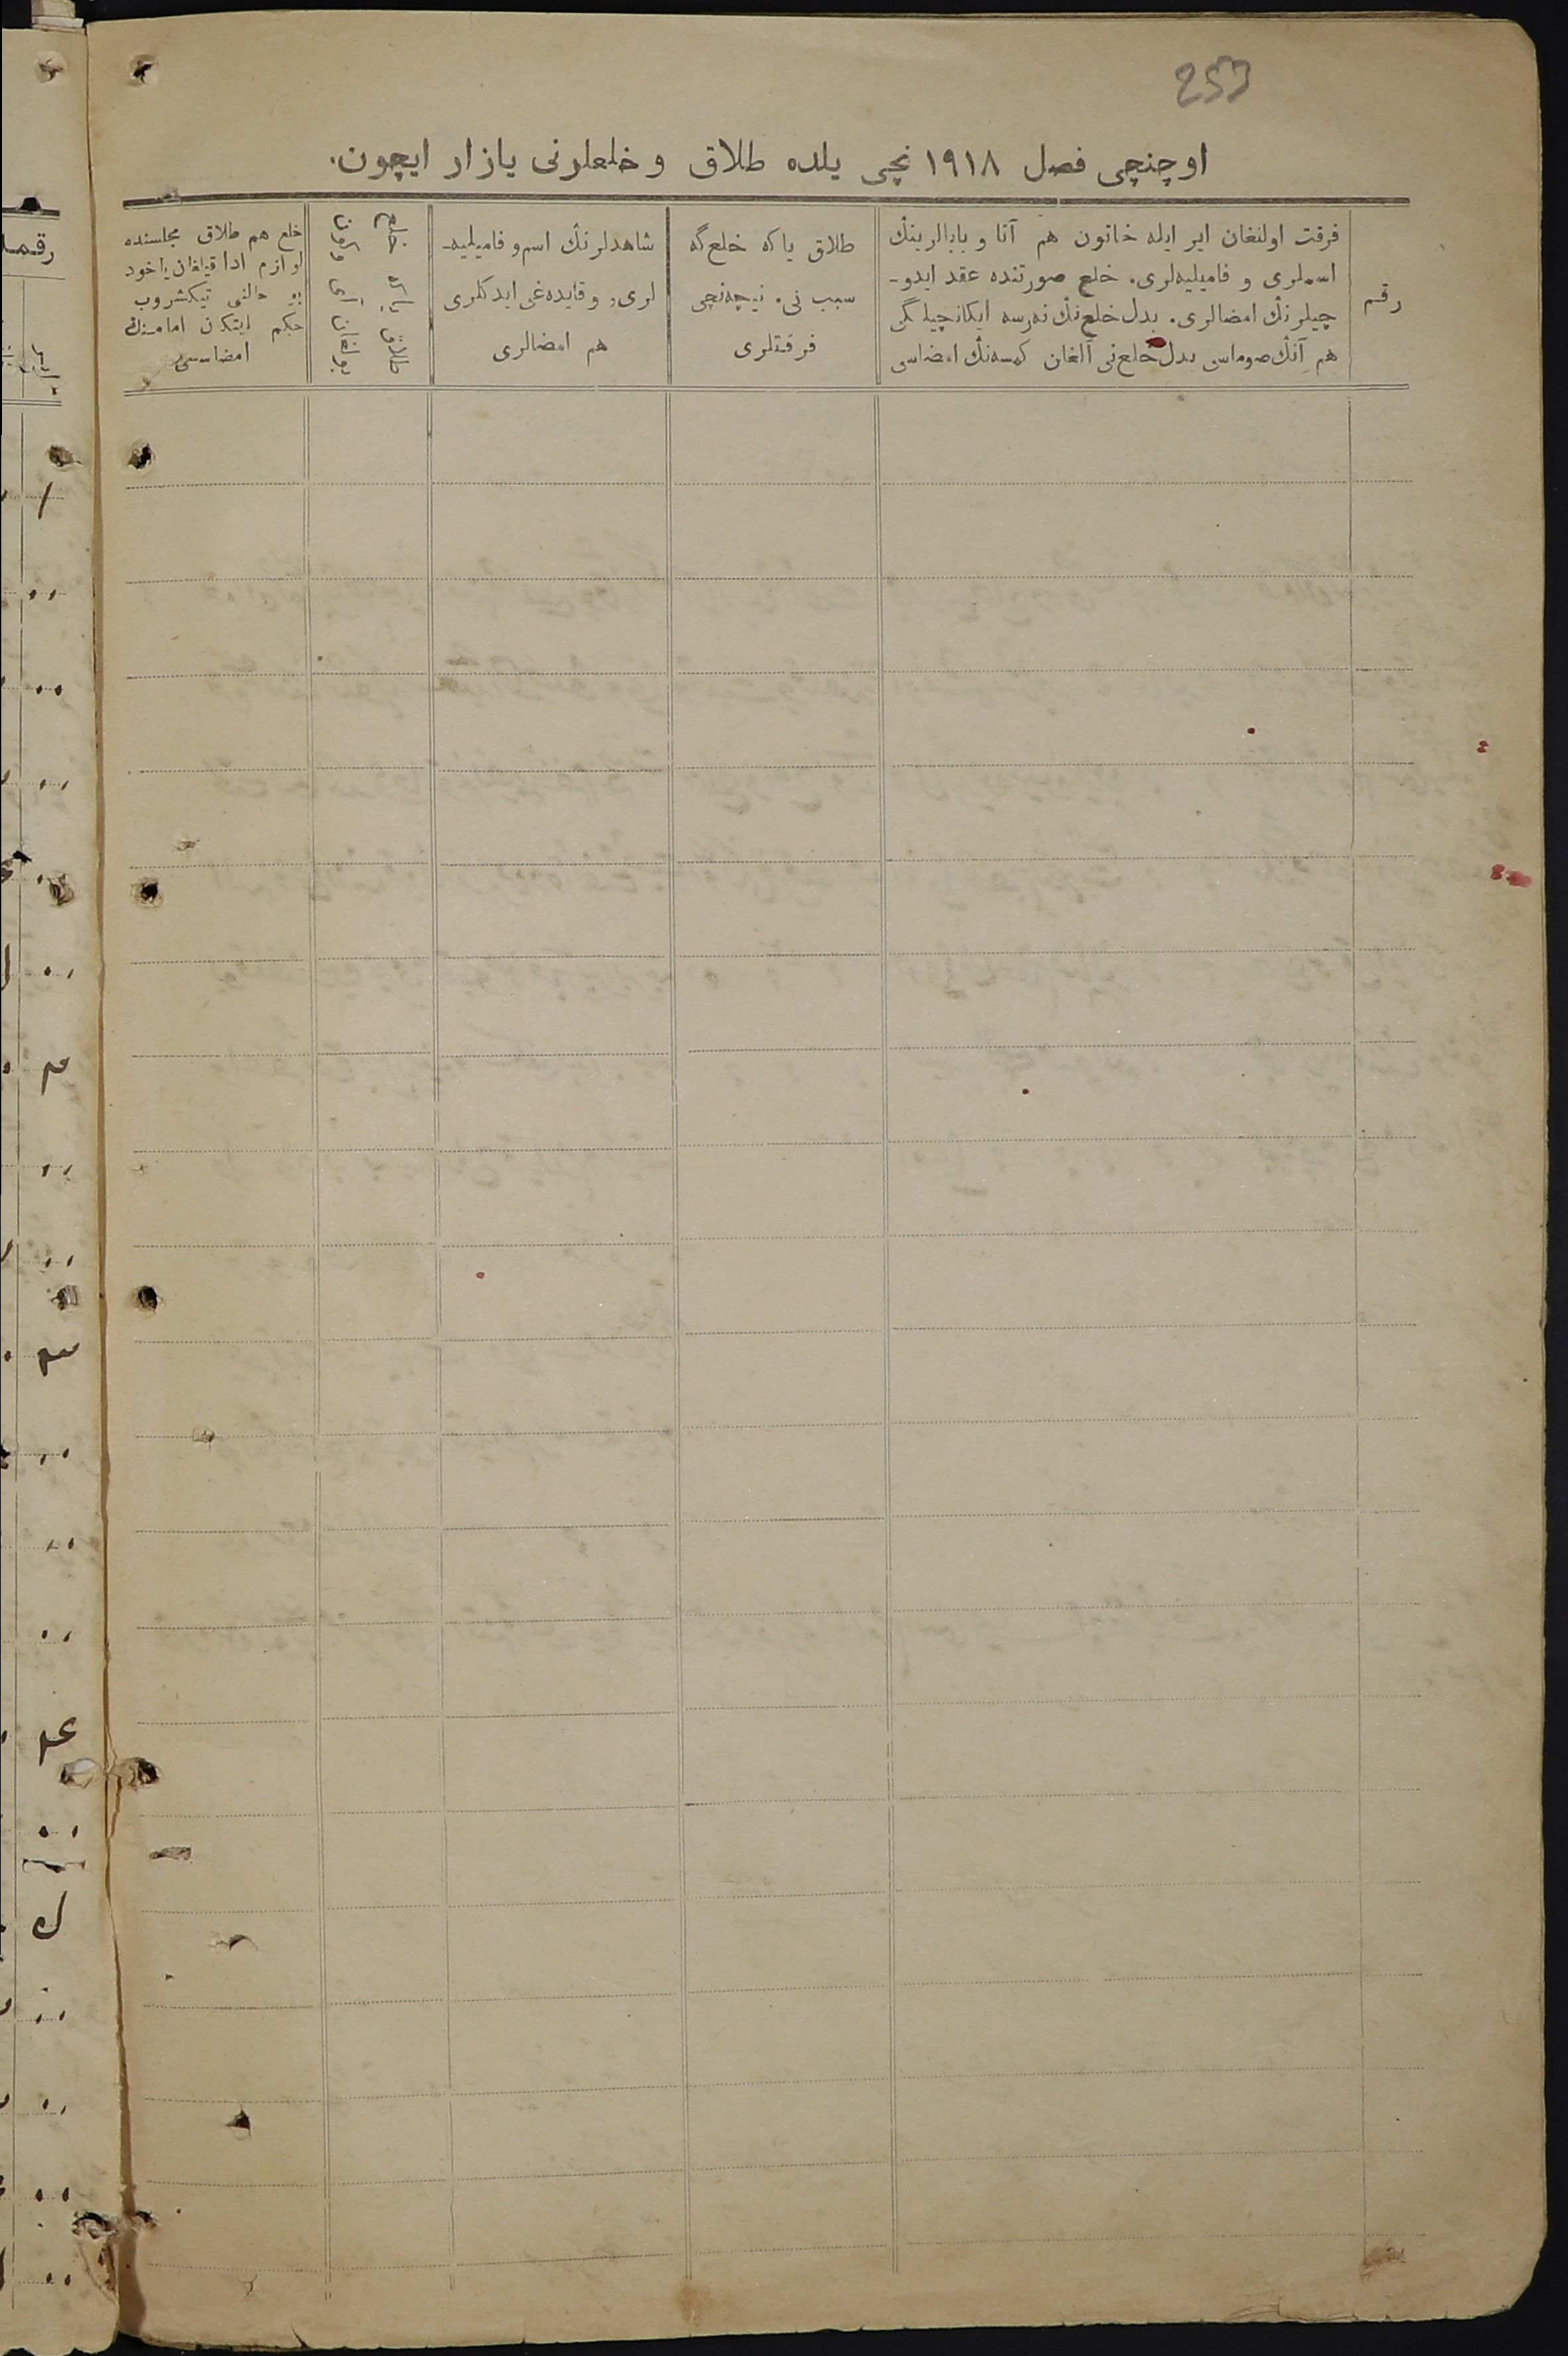 253
اوچنچی فصل ۱۹۱۸ نچی يلده طلاق و خلعلرنی يازار ايچون.
رقم
فرقت اولنغان اير ايله خاتون هم آتا و بابالرينڭ
اسملری و فاميليه‌لری. خلع صورتنده عقد ايدو-
چيلرنڭ امضالری. بدل خلع‌نڭ نه‌رسه ايكانچيلگی
هم آنڭ صوماسی بدل خلع‌نی آلغان كمسه‌نڭ امضاسی
طلاق ياكه خلع‌گه
سبب نی. نيچه‌نچی
فرقتلری
شاهدلرنڭ اسم و فاميليه-
لری، و قايده‌غی ايدكلری
هم امضالری
خلع هم طلاق مجلسنده
لوازم ادا قيلغان ياخود
بو حالنی تيكشروب
حكم ايتكان امامنڭ
امضاسی
رقملر